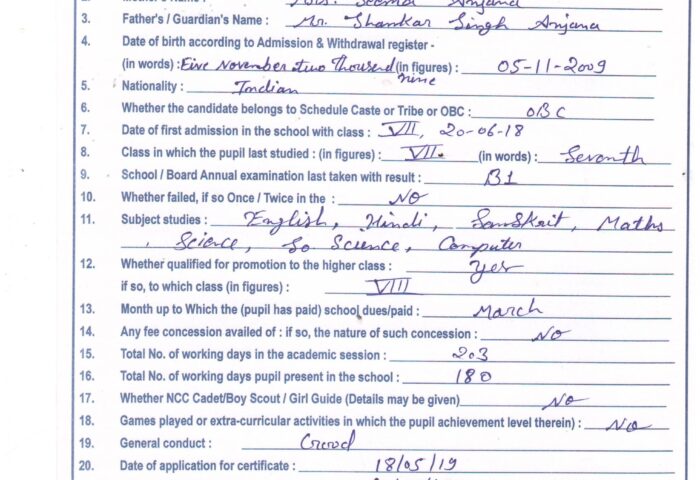 2. Mother's Name : Mrs. Seema Anjana
3. Father's / Guardian's Name : Mr. Shankar Singh Anjana
4. Date of birth according to Admission & Withdrawal register -
(in words) : Five November two Thousend nine (in figures) : 05-11-2009
5. Nationality : Indian
6. Whether the candidate belongs to Schedule Caste or Tribe or OBC : OBC
7. Date of first admission in the school with class : VII, 20-06-18
8. Class in which the pupil last studied : (in figures) : VII. (in words) : Seventh
9. School / Board Annual examination last taken with result : B1
10. Whether failed, if so Once / Twice in the : NO
11. Subject studies : English, Hindi, SanSkrit, Maths
, Science, So Science, Computer
12. Whether qualified for promotion to the higher class : yes
if so, to which class (in figures) : VIII
13. Month up to Which the (pupil has paid) school dues/paid : March
14. Any fee concession availed of : if so, the nature of such concession : NO
15. Total No. of working days in the academic session : 203
16. Total No. of working days pupil present in the school : 180
17. Whether NCC Cadet/Boy Scout / Girl Guide (Details may be given) NO
18. Games played or extra-curricular activities in which the pupil achievement level therein) : NO
19. General conduct : Good
20. Date of application for certificate : 18/05/19